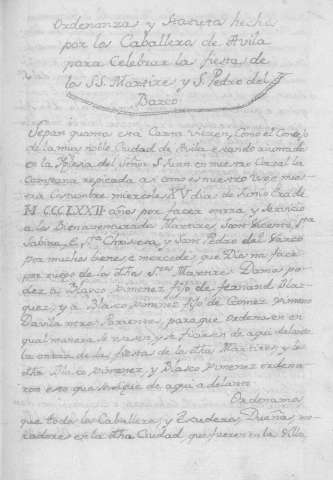 Ordenanzas y Statutos hechos
por los Caballeros de Avila
para Celebrar la fiesta de
los S.S. Martires y S. Pedro del
Barco
Sepan quantos esta Carta vieren, Como el Concejo
de la muy noble Ciudad de Avila estando aiuntados
en la Iglesia del Señor S. Juan en nuestro Corral la
Campana repicada asi como es nuestro uso e nues
tra costumbre miercoles XV dias de Junio Era de
CCCLXXII años por facer onrra y servicio
a los Bienaventurados Martires Sant Vicente, San
Sabina, e, Sta Christeta, y Sant Pedro del Varco
por muchos bienes e mercedes que Dios nos face
por ruego de los dhos Stos Martires Damos po
der a Blasco Ximenez fijo de fernand Blaz
quez, y a Blasco Ximenez fijo de Gomez Ximeno
Davila ntros Parientes, para que ordenasen en
qual manera se usasen, y se ficiesen de aqui delante
la onrra de las fiestas de los dhos Martires y los
dhos Blasco Ximenez, y Blasco Ximenez ordena
ron esto que se sigue de aqui adelante
Ordenamos
que todos los Caballeros, y Escuderos, Dueñas, mo
radores en la dha Ciudad, que fueren en la Villa,